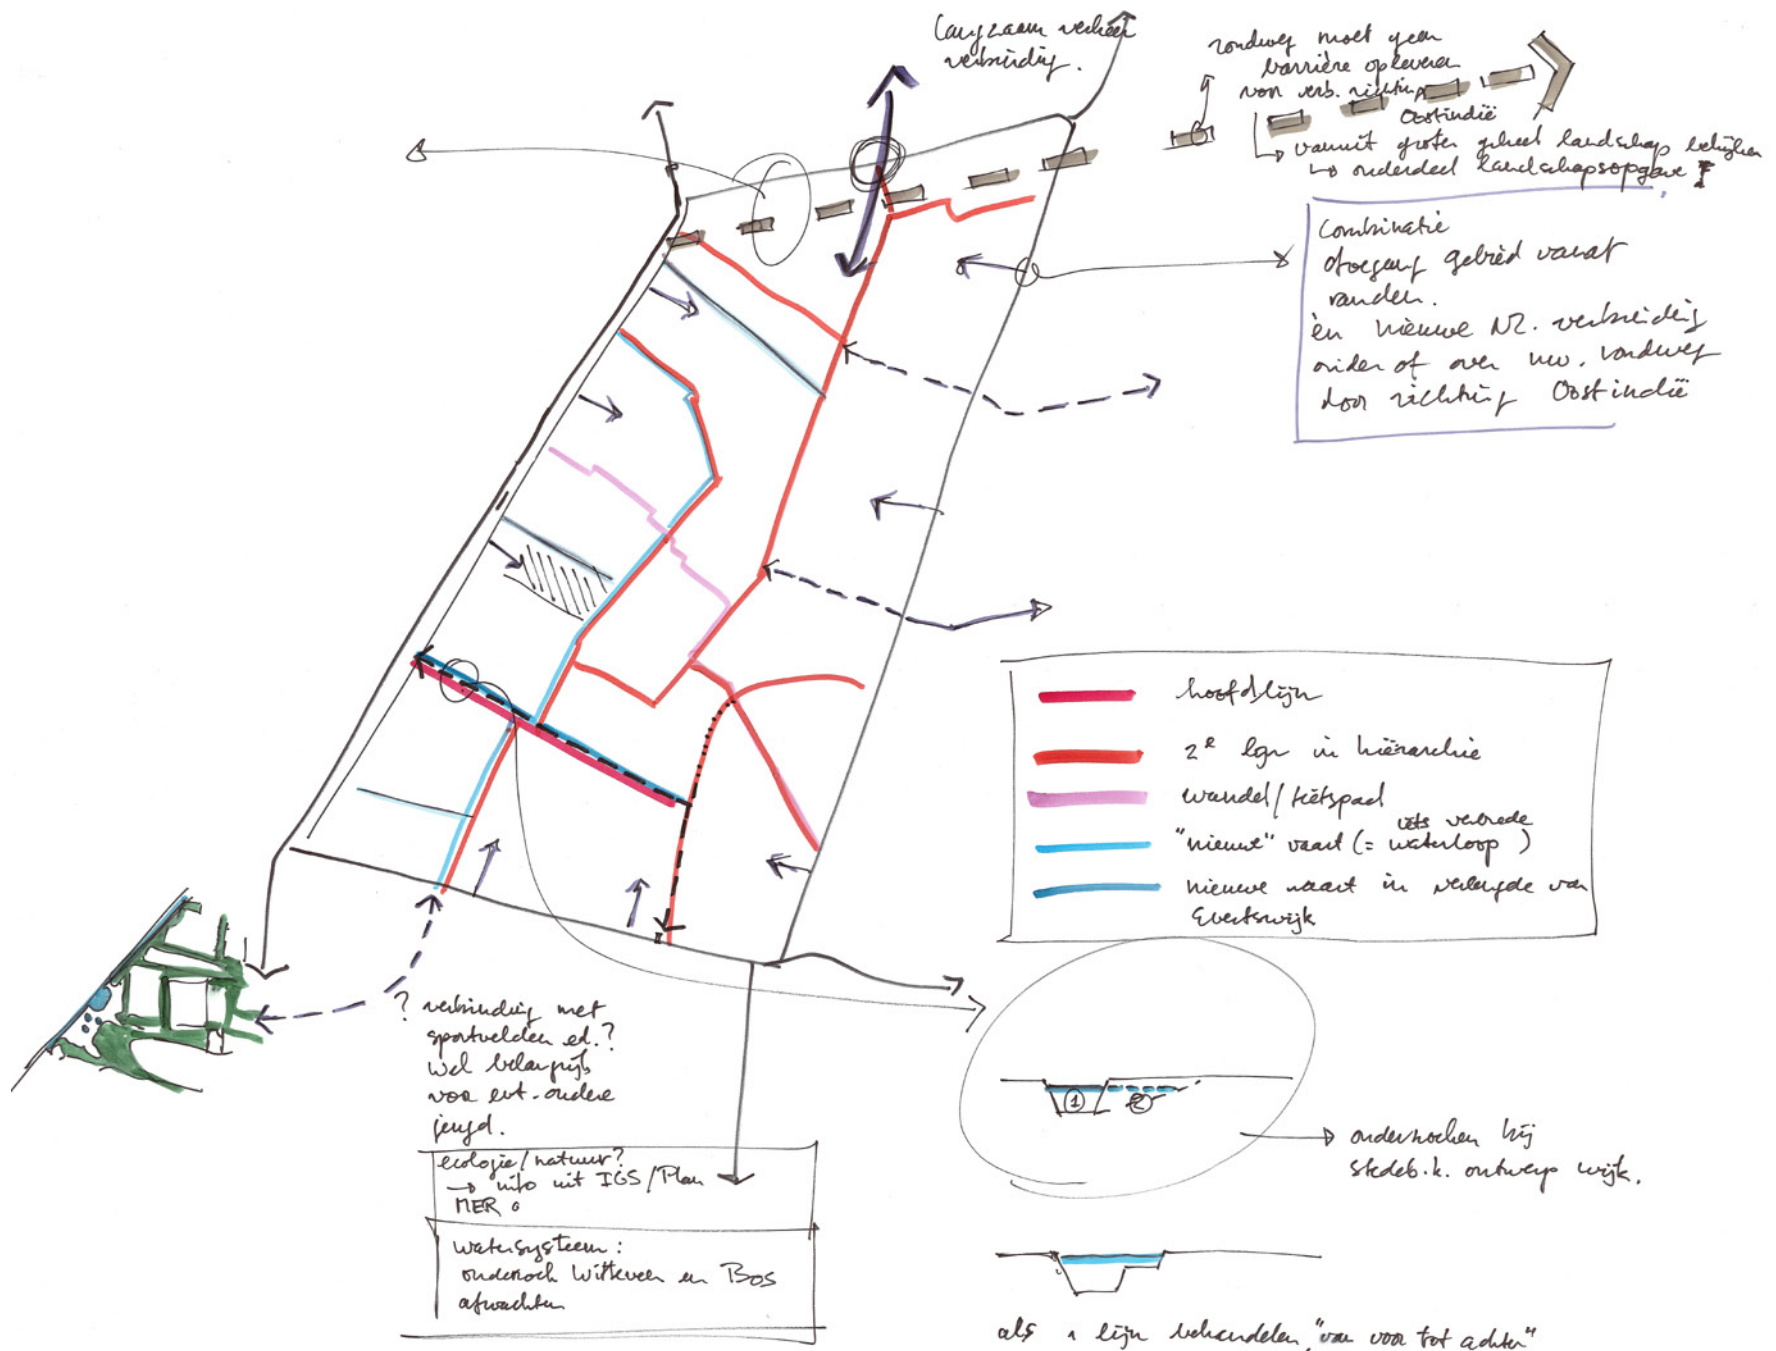 langzaam verkeer
verbinding.
rondweg moet geen
barrière opleveren
voor verb. richting
Oostindië
↳ vanuit groter geheel landschap bekijken
↳ onderdeel landschapsopgave
Combinatie
toegang gebied vanaf
randen.
èn nieuwe NZ. verbinding
onder of over nw. rondweg
door richting Oostindië
hoofdlijn
2e lijn in hiërarchie
wandel/fietspad
iets verbrede
"nieuwe" vaart (= waterloop)
nieuwe vaart in verlengde van
Evertswijk
? verbinding met
sportvelden ed.?
wel belangrijk
voor evt. oudere
jeugd.
ecologie/natuur?
→ info uit IGS/Plan
MER
watersysteem:
onderzoek Witteveen en Bos
afwachten
1
2
→ onderzoeken bij
stedeb.k. ontwerp wijk.
als 1 lijn behandelen "van voor tot achter"